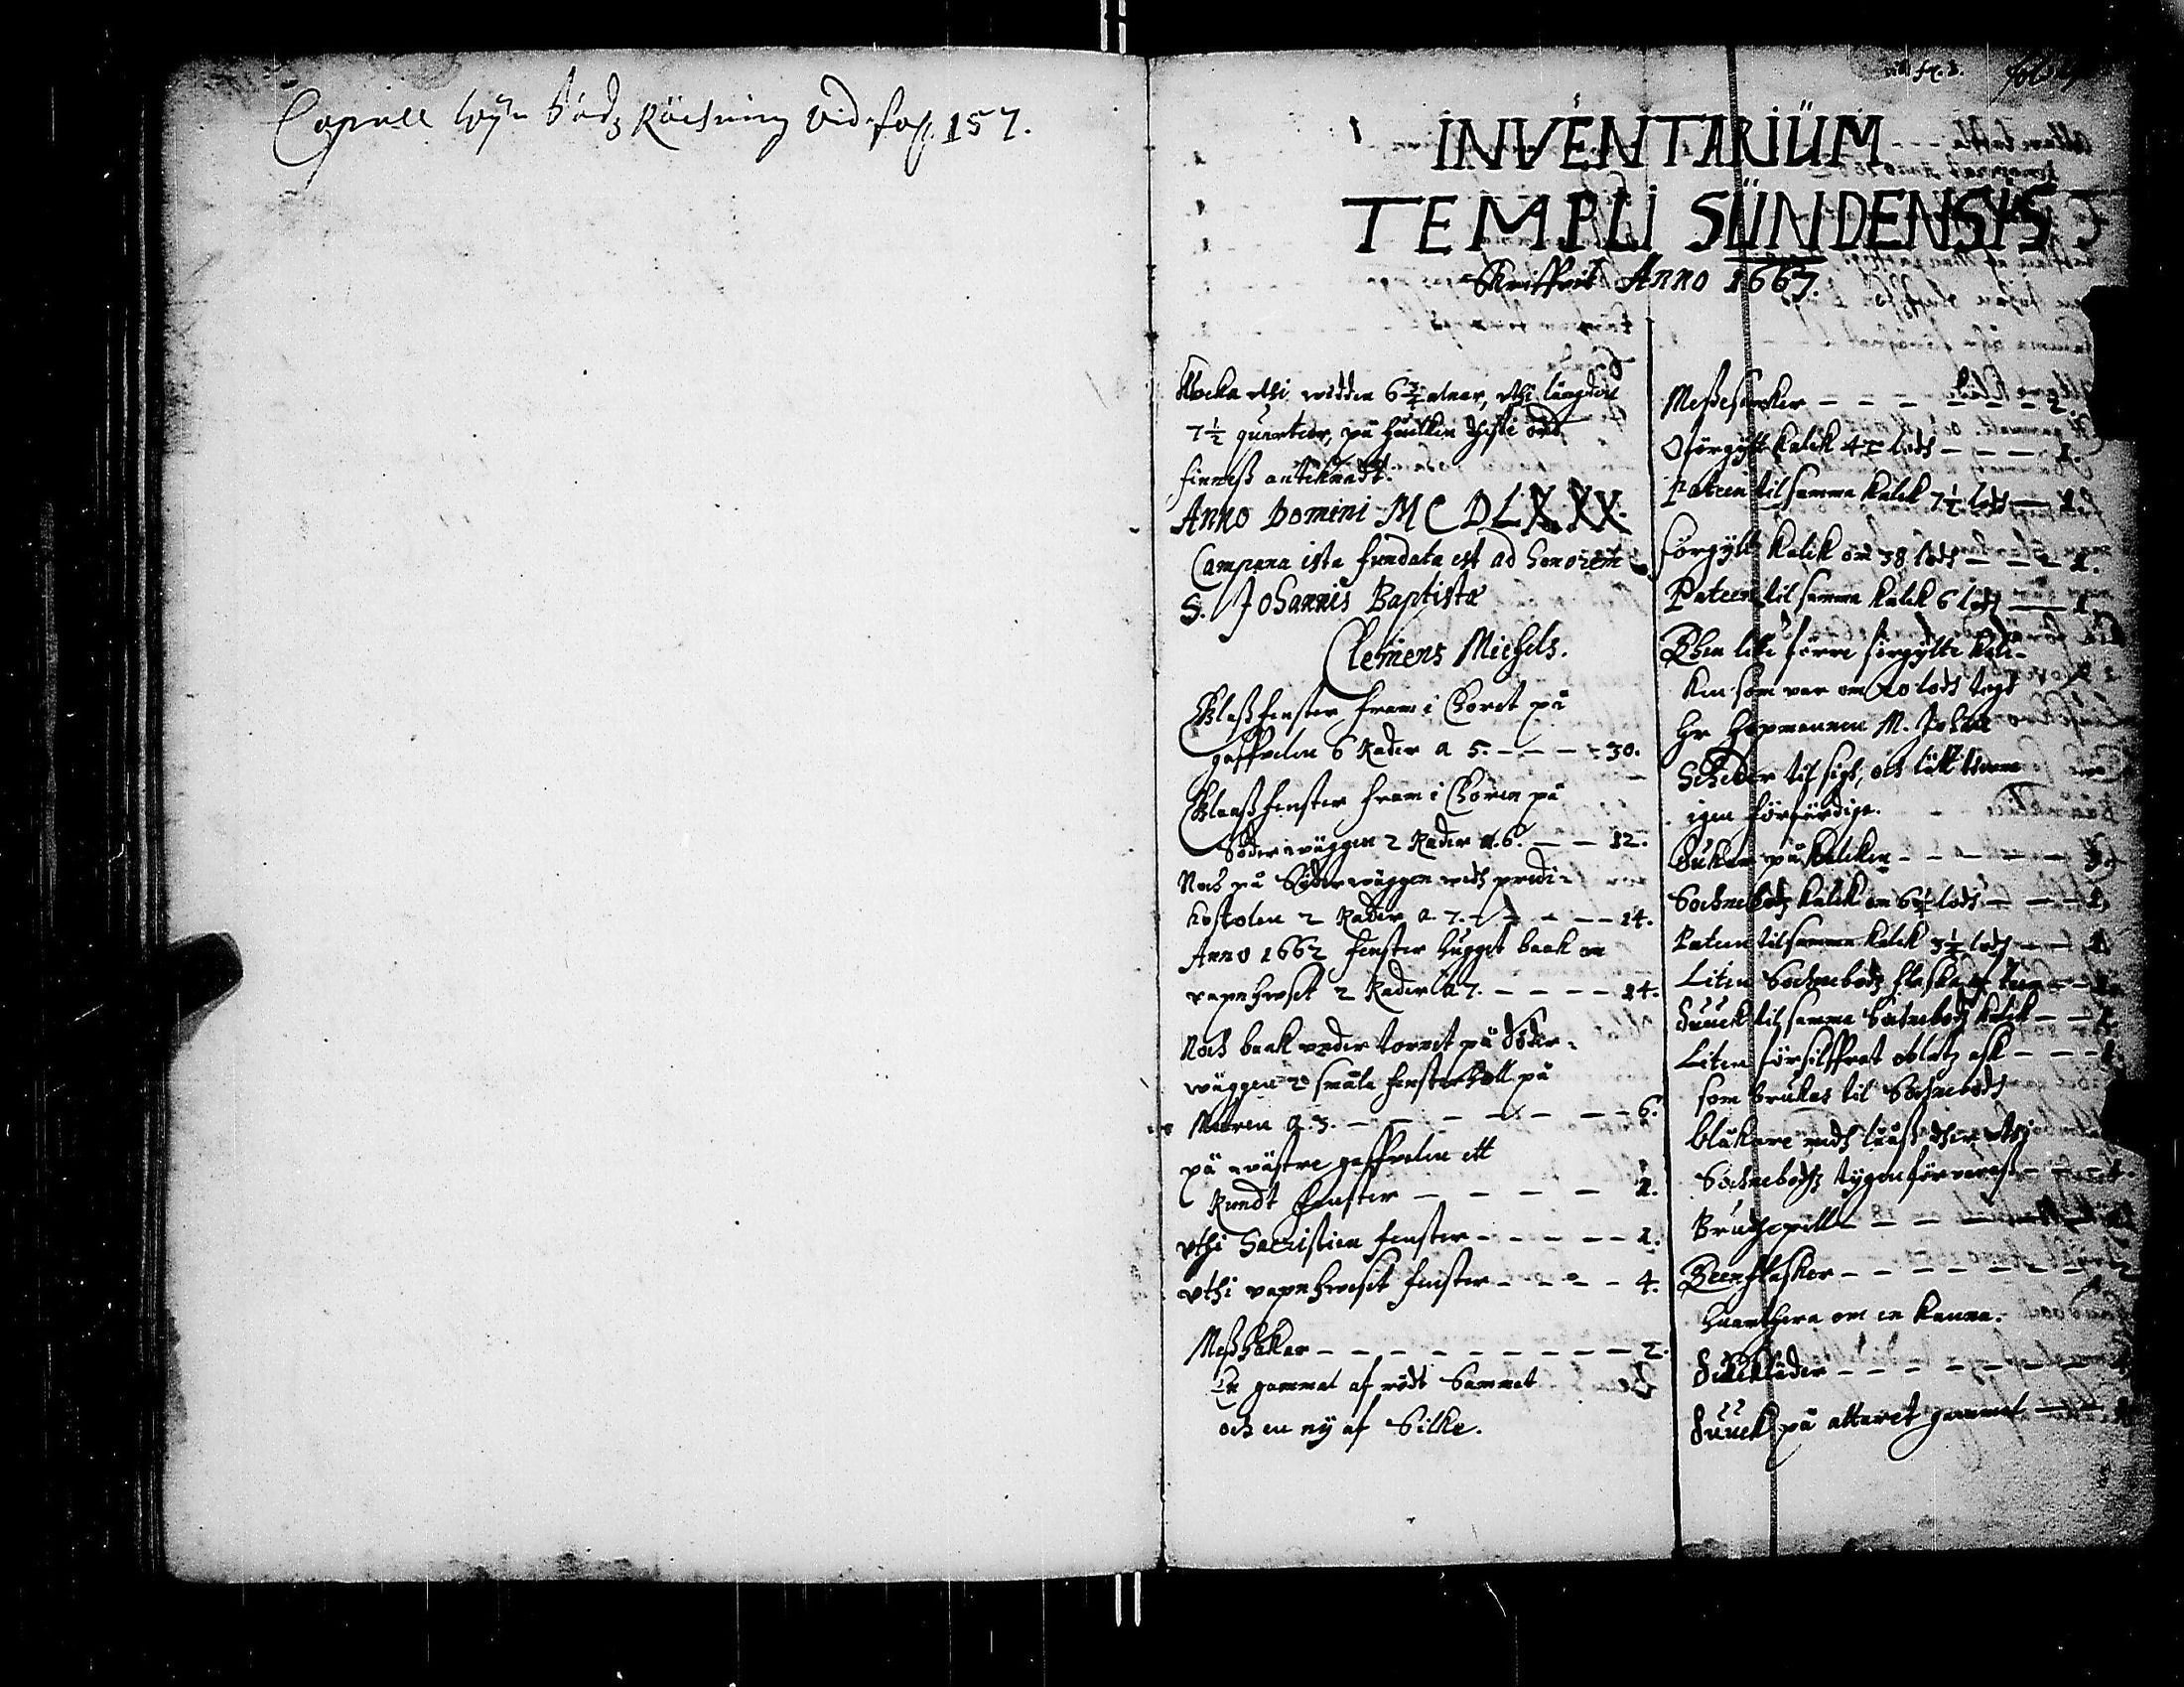 Capell Wijn Södz Räckning vid fol. 157.
INVENTARIUM
TEMPLI SÜNDENSIS
Skriffvit Anno 1667.
Klocka uthi widden 6 3/4 alnar, uthi längden
7 1/2 quarteer, på huilken thesse ord
finness anteknadt.
Anno Domini MCDLXXX.
Campana ista fundata est ad honorem
S. Johannis Baptistæ
Clemens Michels.
Glassfenster fram i Choret på
gaffvelen 6 Rader a 5. - - - - 30.
Glaassfenster fram i Choren på
Söder wäggen 2 Rader a. 6. - - 12.
Noch på Söder wäggen widh predi-
kostolen 2 Rader a 7. - - - - 14.
Anno 1662 fenster hugget baak om
vapnhuset 2 Rader a 7. - - - - 14.
Noch baak under tornet på Söder-
wäggen 2 smala fensterholl på
Muren a. 3. - - - - - - - 6.
på wästre gaffvelen ett
Rundt fenster - - - - - 1.
uthi Sacristien fenster - - - - - 1.
uthi vapnhuset fenster - - - - 4.
Messhakar - - - - - - - - - 2.
En gammal af rödt Sammet
och en ny af Silke.
Messesärker - - - - - - - 2.
Oförgylt kalik 4 lodh - - - - 1.
Pateen til samma kalik 7 1/2 lodh - 1.
Förgylt kalik om 38 lodh - - - 1.
Pateen til samma kalik 6 lodh - 1.
Then lilla förre förgylte kali-
ken som var om 20 lodh togh
Hr Hopmannen M. Johan
til sigh, och lätt denne
igen förfärdiga.
Dukar på kalken - - - - - - 3.
Sochnebodz kalik om 6 lodh - - - 1.
Pateen til samma kalik 3 1/2 lodh - - 1.
Liten Sochnebodz flaska af teen - - 1.
Duuck til samma Sochnebodz kalik - - 1.
Liten försilffrat oblatz ask - - - 1.
som brukas til Sochnebodh
Bläkare medh liuuss ther uthi
Sochnebodhz tygen förvaras - - - 1.
Brudhepell - - - - -
Teenflasker - - - - - - - 2
huarthera om en kanna.
- - - - - - -
Duuck på altaret gammal - - 1